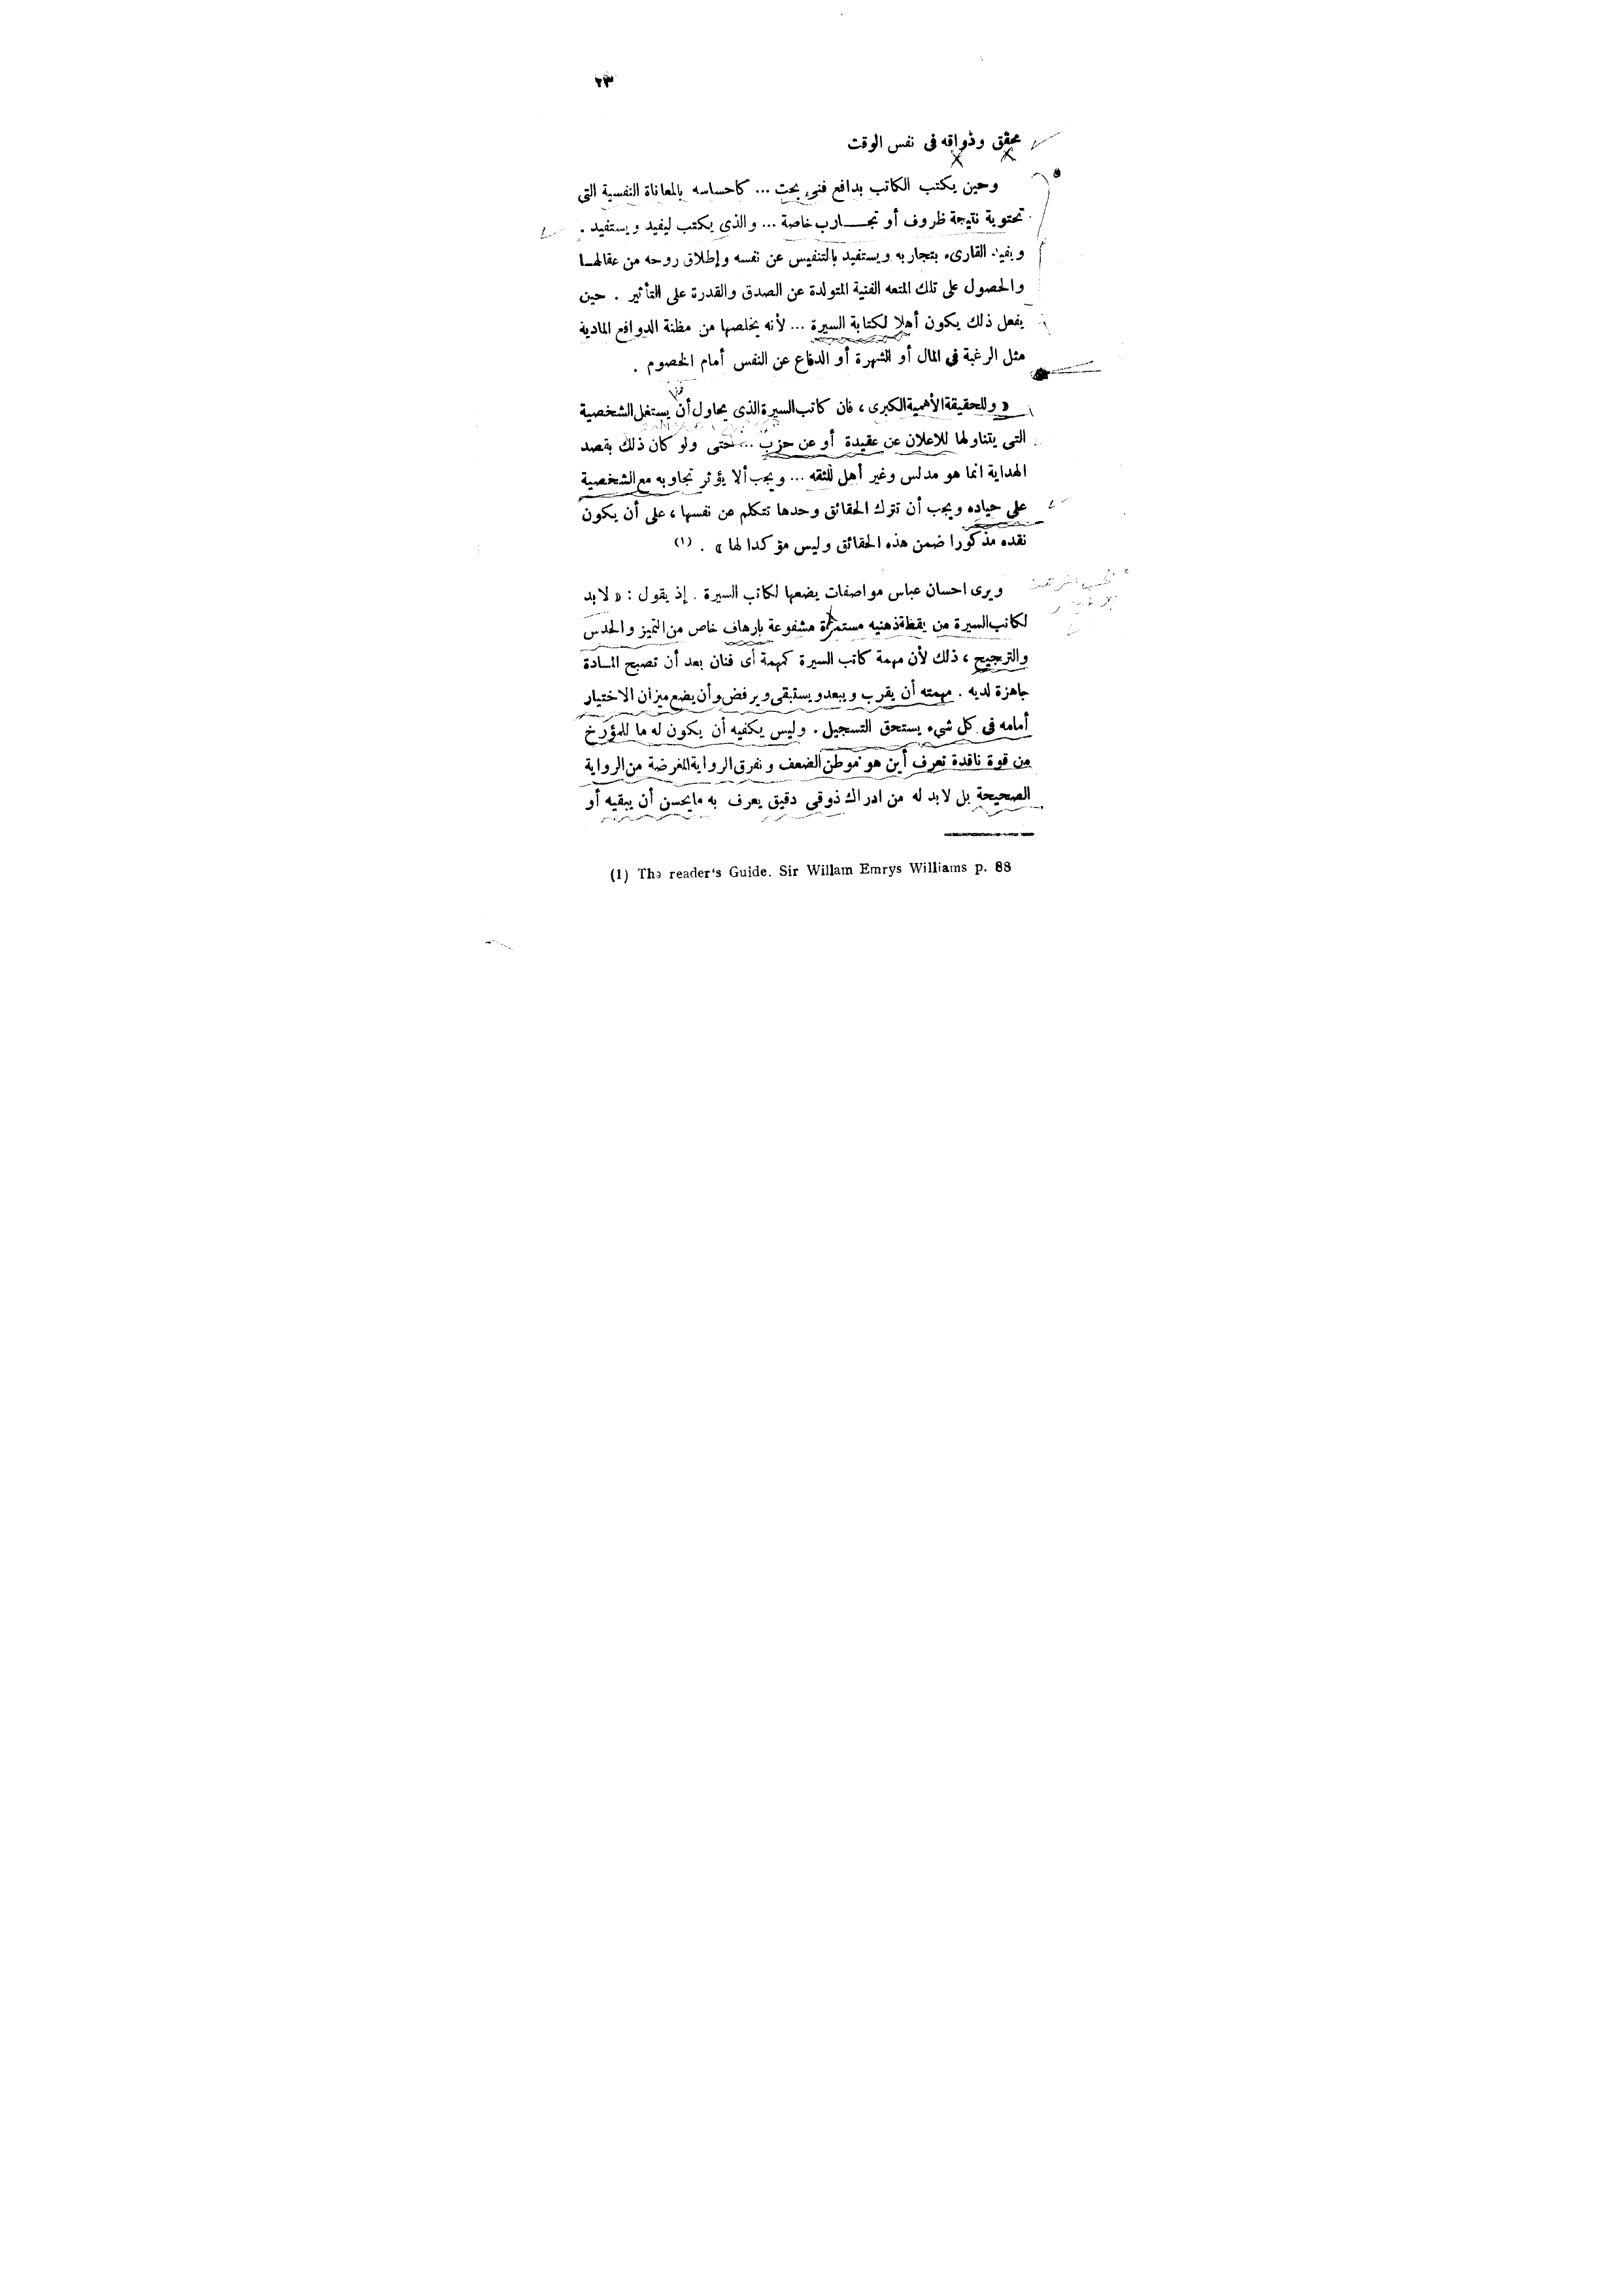 ٢٣
محقق وذواقه فى نفس الوقت
وحين يكتب الكاتب بدافع فنى بحت ... كاحساسه بالمعاناة النفسية التى
تحتوية نتيجة ظروف أو تجارب خاصة ... والذى يكتب ليفيد ويستفيد .
ويفيد القارىء بتجاربه ويستفيد بالتنفيس عن نفسه وإطلاق روحه من عقالها
والحصول على تلك المتعه الفنية المتولدة عن الصدق والقدرة على التأثير . حين
يفعل ذلك يكون أهلا لكتابة السيرة ... لأنه يخلصها من مظنة الدوافع المادية
مثل الرغبة فى المال أو الشهرة أو الدفاع عن النفس أمام الخصوم .
« وللحقيقة الأهمية الكبرى ، فان كاتب السيرة الذى يحاول أن يستغل الشخصية
التى يتناولها للاعلان عن عقيدة أو عن حزب ... حتى ولو كان ذلك بقصد
الهداية انما هو مدلس وغير أهل للثقه ... ويجب ألا يؤثر تجاوبه مع الشخصية
على حياده ويجب أن تترك الحقائق وحدها تتكلم عن نفسها ، على أن يكون
نقده مذكورا ضمن هذه الحقائق وليس مؤكدا لها » . (١)
ويرى احسان عباس مواصفات يضعها لكاتب السيرة . إذ يقول : « لابد
لكاتب السيرة من يقظة ذهنيه مستمرة مشفوعة بارهاف خاص من التميز والحدس
والترجيح ، ذلك لأن مهمة كاتب السيرة كمهمة أى فنان بعد أن تصبح المادة
جاهزة لديه . مهمته أن يقرب ويبعد ويستبقى ويرفض وأن يضع ميزان الاختيار
أمامه فى كل شىء يستحق التسجيل . وليس يكفيه أن يكون له ما للمؤرخ
من قوة ناقدة تعرف أين هو موطن الضعف وتفرق الرواية المغرضة من الرواية
الصحيحة بل لابد له من ادراك ذوقى دقيق يعرف به مايحسن أن يبقيه أو
(1) The reader's Guide. Sir Willam Emrys Williams p. 88